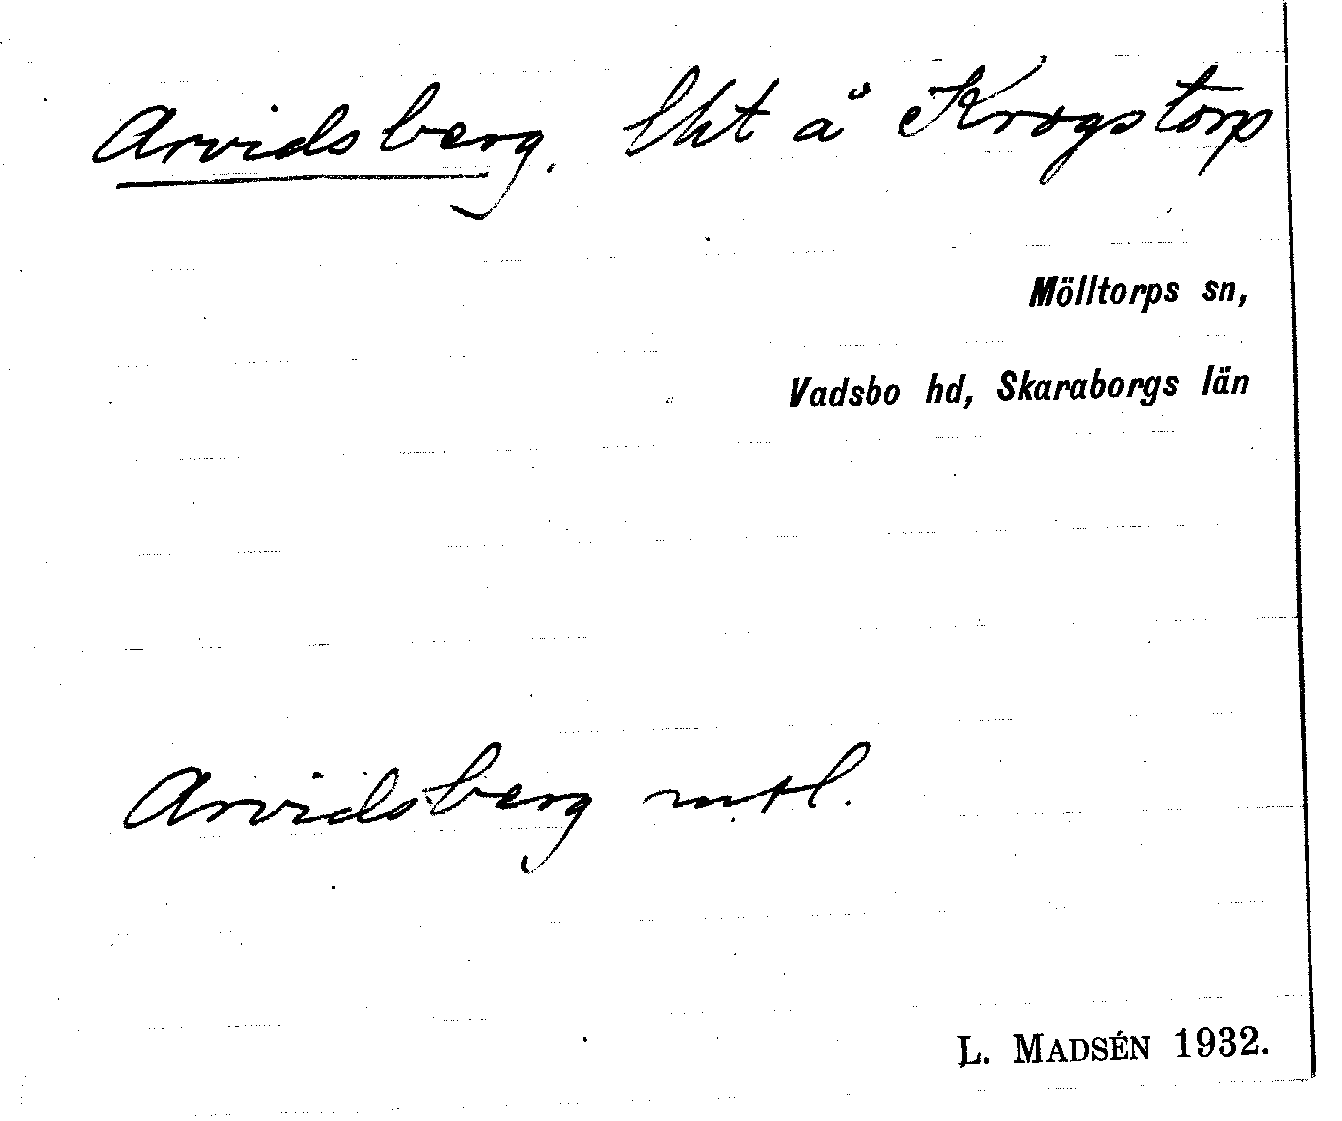 Arvidsberg. lht å Krogstorp
Mölltorps sn,
Vadsbo hd, Skaraborgs län
Arvidsberg mtl.
L. MADSÉN 1932.